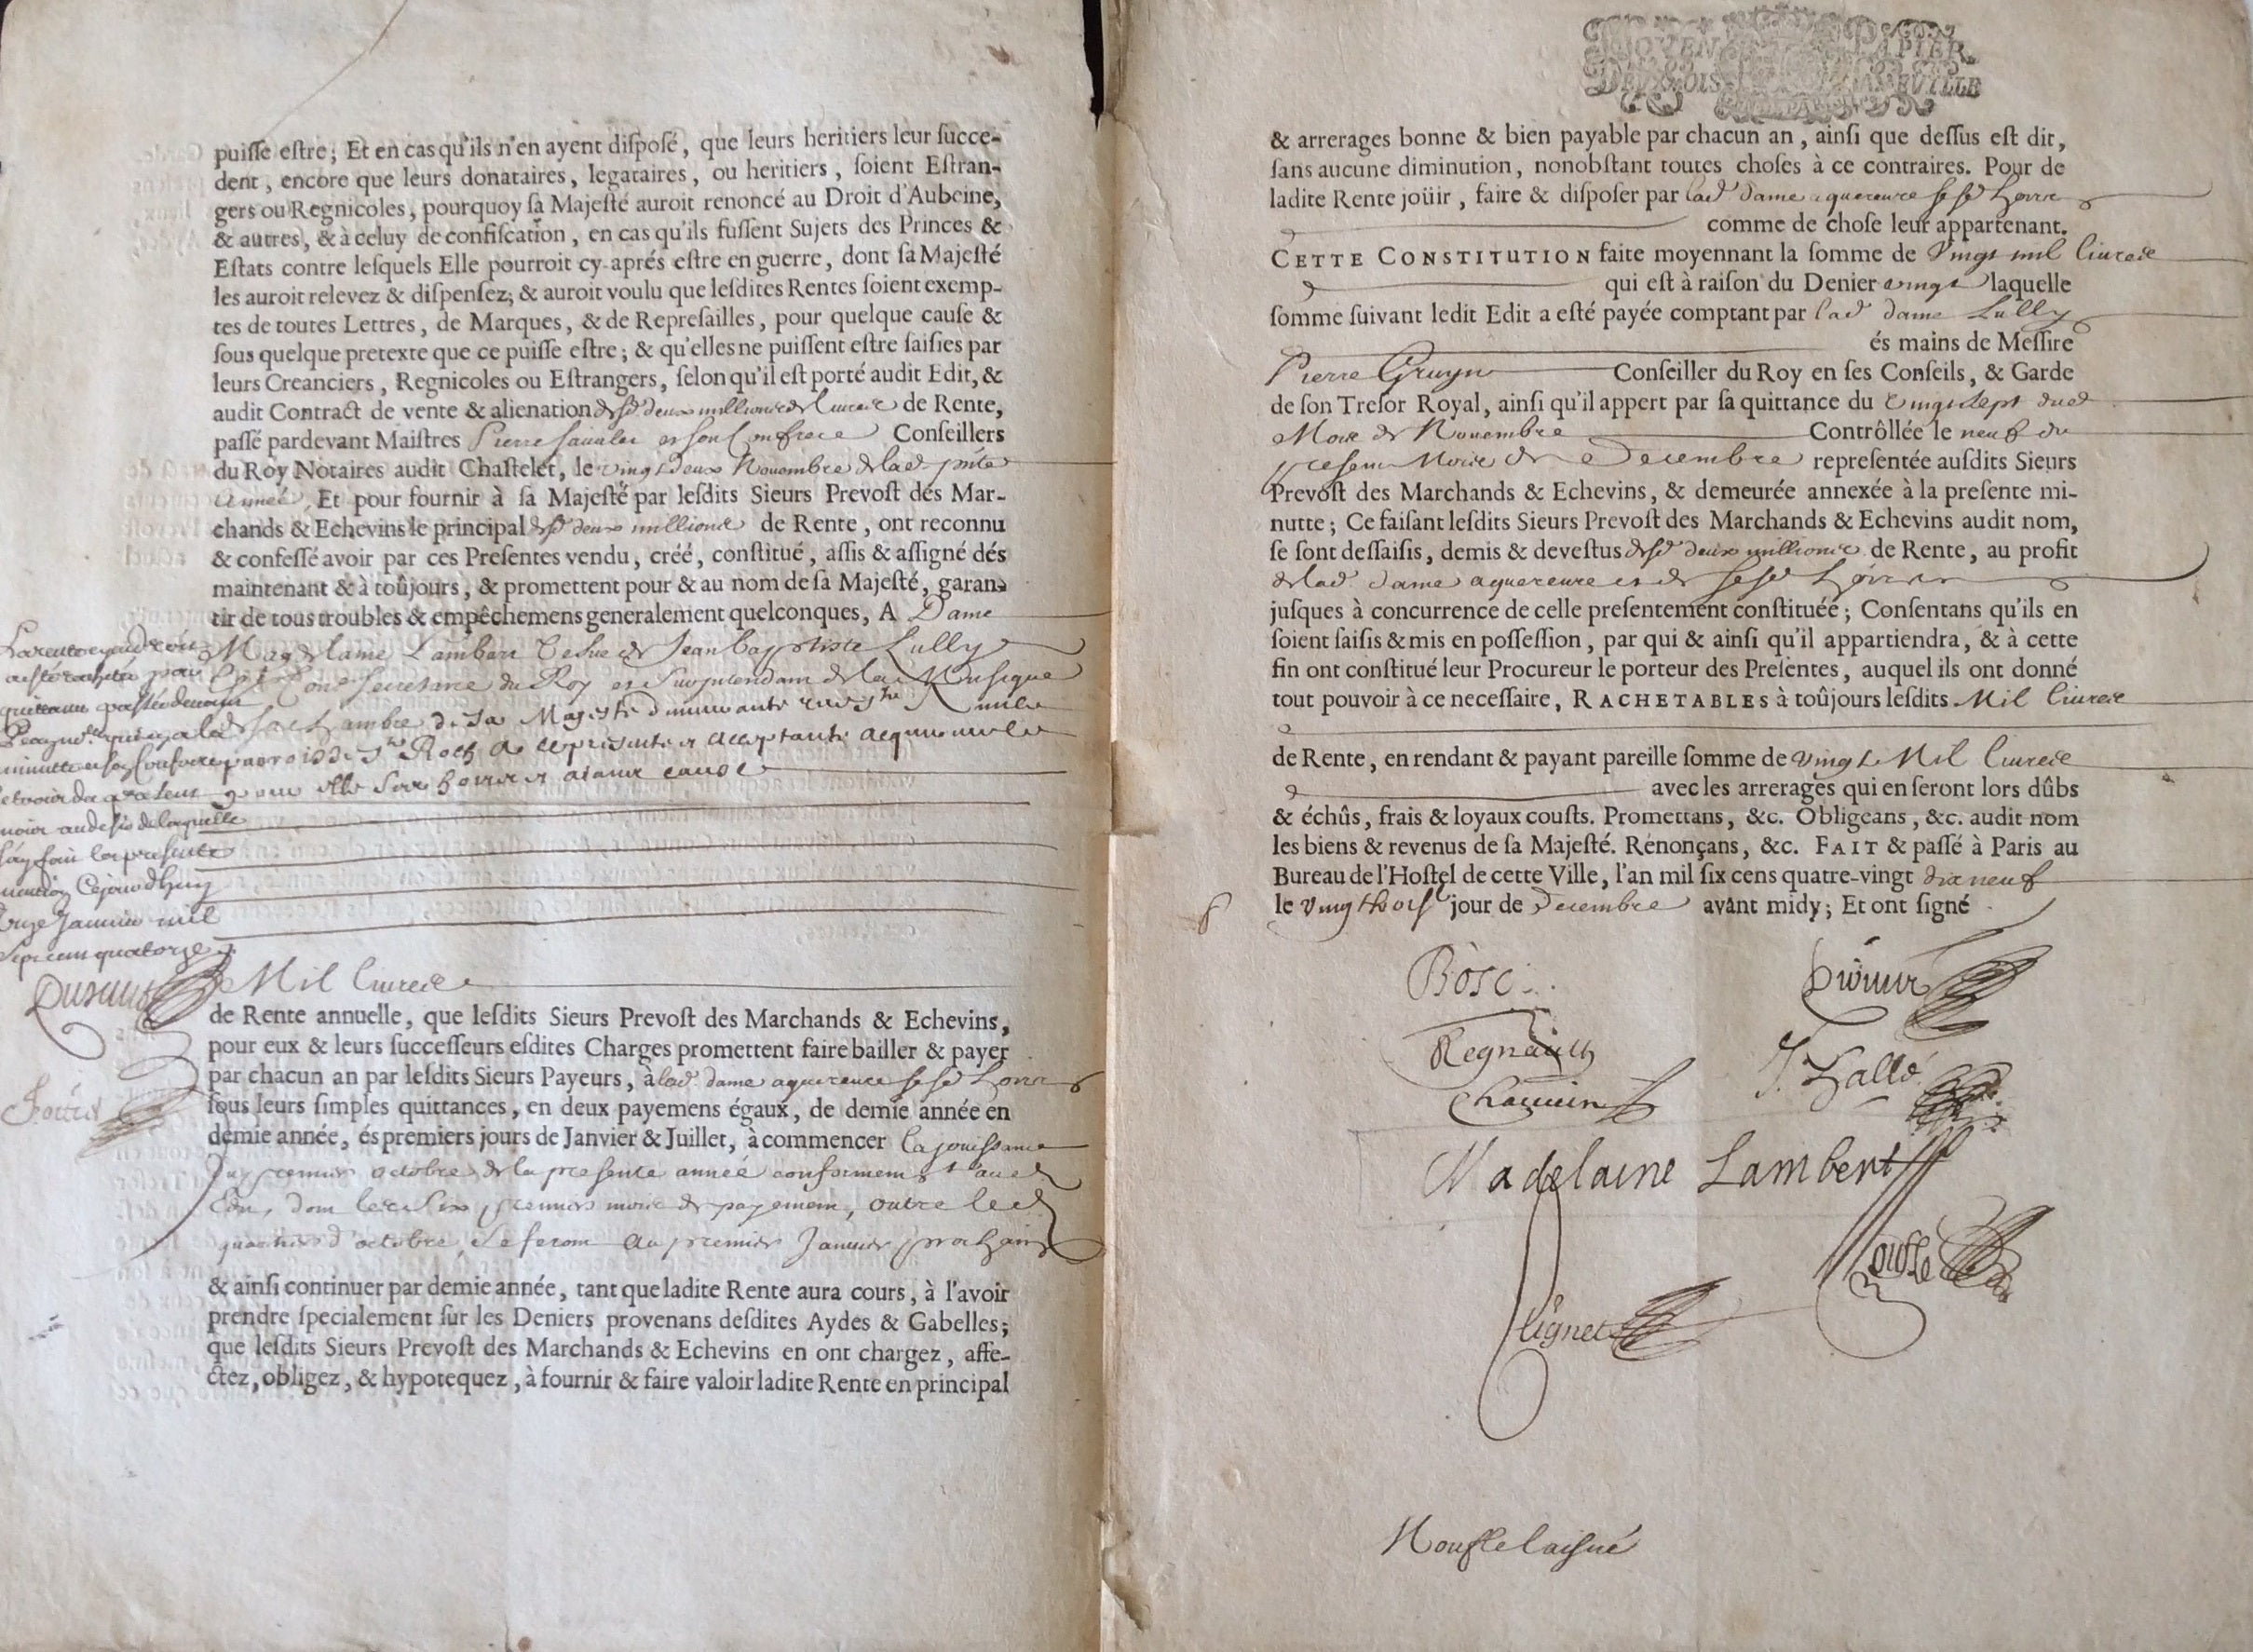 puisse estre; Et en cas qu'ils n'en ayent disposé, que leurs heritiers leur succe-
dent, encore que leurs donataires, legataires, ou heritiers, soient Estran-
gers ou Regnicoles, pourquoy sa Majesté auroit renoncé au Droit d'Aubeine,
& autres, & à celuy de confiscation, en cas qu'ils fussent Sujets des Princes &
Estats contre lesquels Elle pourroit cy-aprés estre en guerre, dont sa Majesté
les auroit relevez & dispensez; & auroit voulu que lesdites Rentes soient exemp-
tes de toutes Lettres, de Marques, & de Represailles, pour quelque cause &
sous quelque pretexte que ce puisse estre; & qu'elles ne puissent estre saisies par
leurs Creanciers, Regnicoles ou Estrangers, selon qu'il est porté audit Edit, &
audit Contract de vente & alienation desd deux millions de livres de Rente,
passé pardevant Maistres Pierre Sainler et son Confrere Conseillers
du Roy Notaires audit Chastelet, le vingt deux Novembre de lad pnte
année, Et pour fournir à sa Majesté par lesdits Sieurs Prevost des Mar-
chands & Echevins le principal desd deux millions de Rente, ont reconnu
& confessé avoir par ces Presentes vendu, créé, constitué, assis & assigné dés
maintenant & à toûjours, & promettent pour & au nom de sa Majesté, garan-
tir de tous troubles & empêchemens generalement quelconques, A Dame
Magdelaine Lambert Vefve de Jean baptiste Lully
Conr Secretaire du Roy et Surintendant de la Musique
de sa Chambre de Sa Majesté demeurante rue Ste
parroisse St Roch a ce presente et acceptante
pour elle ses hoirs et aians cause
La rente
a esté rachetée par
quittance passée devant
minutte et son confrere
au desir de laquelle
j'ay fait la presente
mention Cejourdhuy
Janvier mil
sept cens quatorze
Mil livres
de Rente annuelle, que lesdits Sieurs Prevost des Marchands & Echevins,
pour eux & leurs successeurs esdites Charges promettent faire bailler & payer
par chacun an par lesdits Sieurs Payeurs, à lad dame aquereure sesd hoirs
sous leurs simples quittances, en deux payemens égaux, de demie année en
demie année, és premiers jours de Janvier & Juillet, à commencer la jouissance
du premier octobre de la presente année conformement aud
Edit, dont les six premiers mois de payement, outre led
quartier d'octobre, se feront au premier Janvier prochain
& ainsi continuer par demie année, tant que ladite Rente aura cours, à l'avoir
prendre specialement sur les Deniers provenans desdites Aydes & Gabelles;
que lesdits Sieurs Prevost des Marchands & Echevins en ont chargez, affe-
ctez, obligez, & hypotequez, à fournir & faire valoir ladite Rente en principal
MOYEN PAPIER
DEUX SOLS LA FEUILLE
& arrerages bonne & bien payable par chacun an, ainsi que dessus est dit,
sans aucune diminution, nonobstant toutes choses à ce contraires. Pour de
ladite Rente joüir, faire & disposer par lad dame aquereure sesd hoirs
comme de chose leur appartenant.
CETTE CONSTITUTION faite moyennant la somme de Vingt mil livres
qui est à raison du Denier vingt laquelle
somme suivant ledit Edit a esté payée comptant par lad dame Lully
és mains de Messire
Pierre Gruyn Conseiller du Roy en ses Conseils, & Garde
de son Tresor Royal, ainsi qu'il appert par sa quittance du Vingt sept dud
Mois de Novembre Contrôllée le neuf du
present Mois de Decembre representée ausdits Sieurs
Prevost des Marchands & Echevins, & demeurée annexée à la presente mi-
nutte; Ce faisant lesdits Sieurs Prevost des Marchands & Echevins audit nom,
se sont dessaisis, demis & devestus desd deux millions de Rente, au profit
de lad dame aquereure et de sesd hoirs
jusques à concurrence de celle presentement constituée; Consentans qu'ils en
soient saisis & mis en possession, par qui & ainsi qu'il appartiendra, & à cette
fin ont constitué leur Procureur le porteur des Presentes, auquel ils ont donné
tout pouvoir à ce necessaire, RACHETABLES à toûjours lesdits Mil livres
de Rente, en rendant & payant pareille somme de Vingt Mil livres
avec les arrerages qui en seront lors dûbs
& échûs, frais & loyaux cousts. Promettans, &c. Obligeans, &c. audit nom
les biens & revenus de sa Majesté. Rénonçans, &c. FAIT & passé à Paris au
Bureau de l'Hostel de cette Ville, l'an mil six cens quatre-vingt dix neuf
le Vingt trois jour de Decembre avant midy; Et ont signé
Bosc
Regnault
J. Hallé
Chauuin
Madelaine Lambert